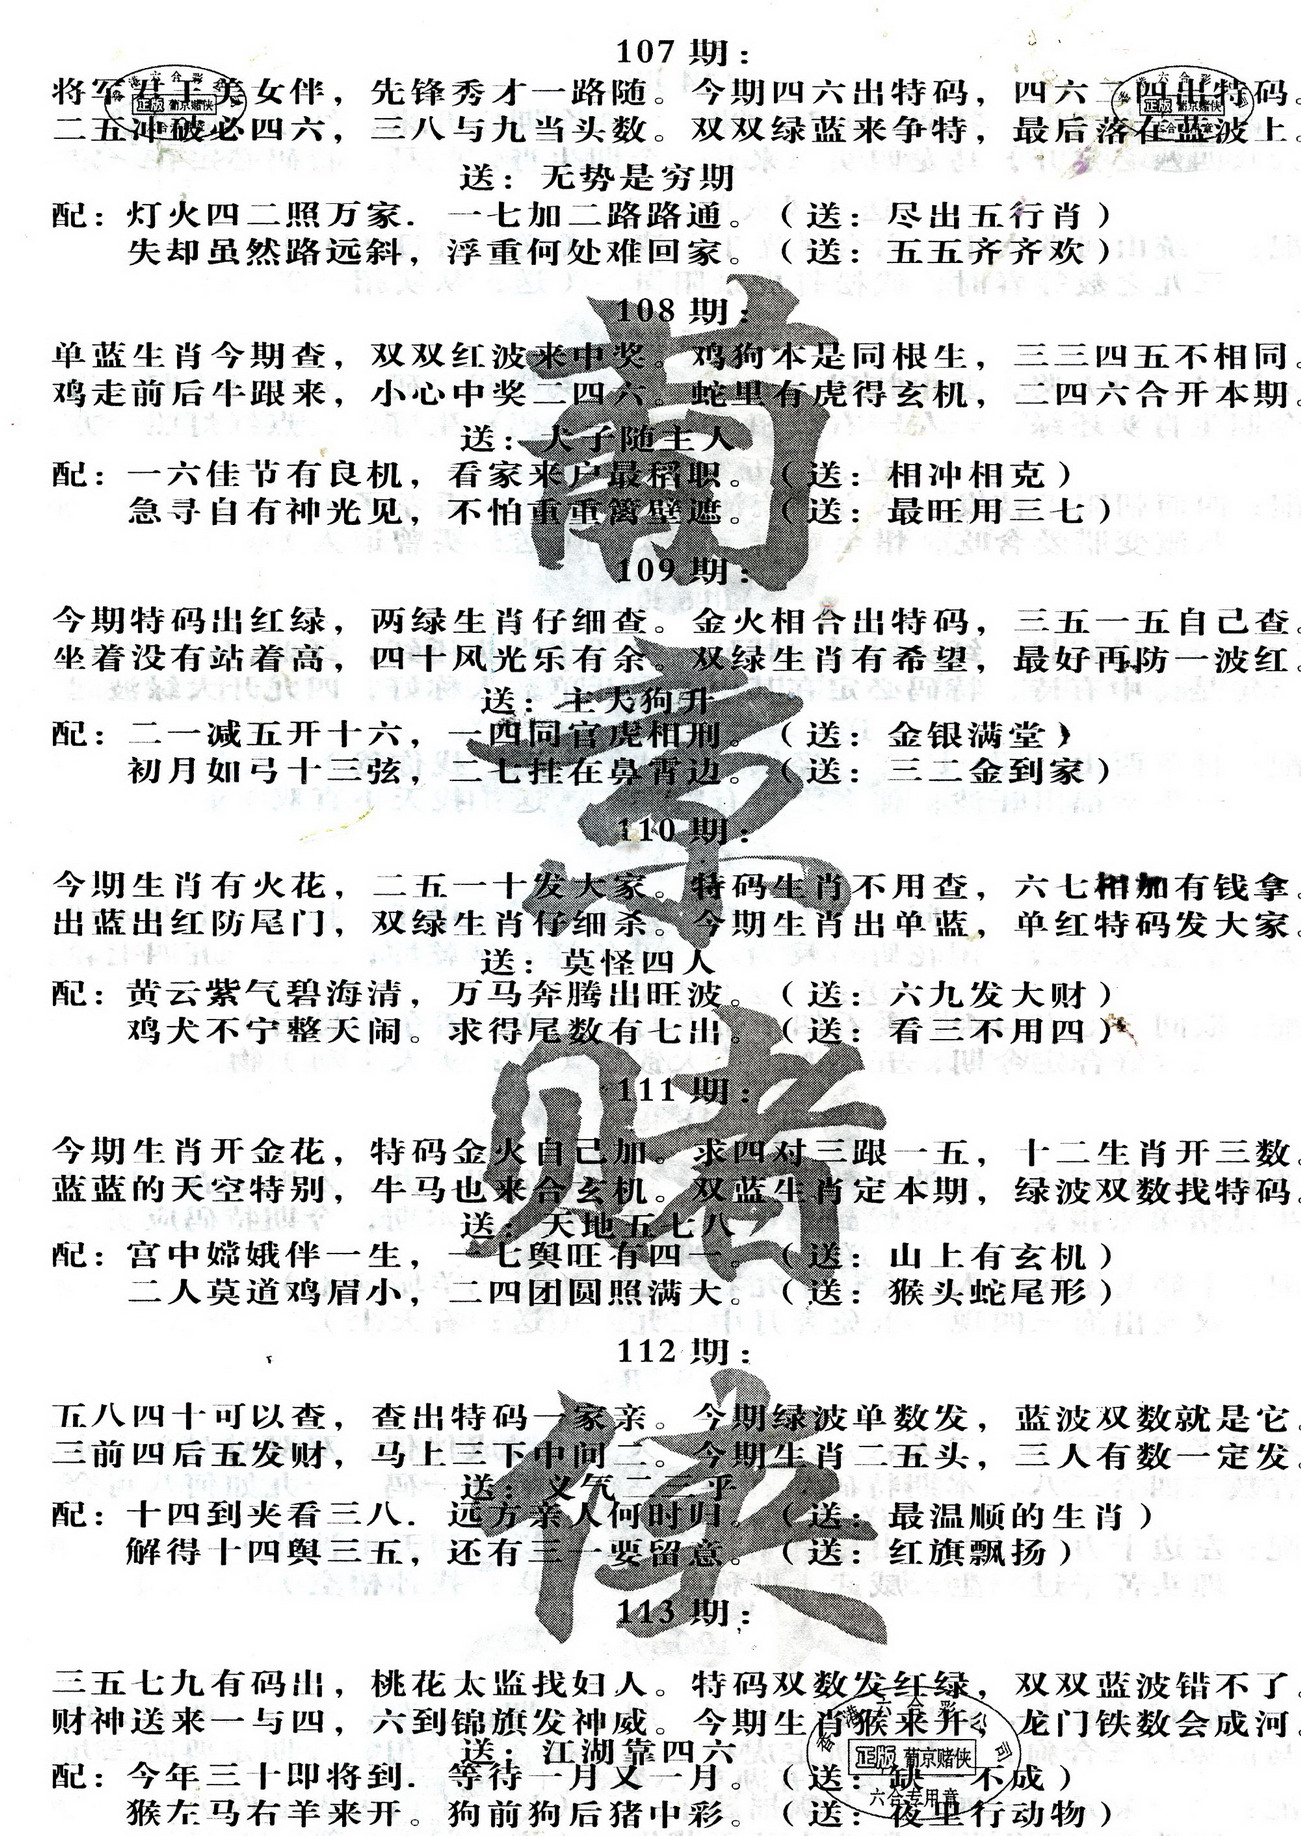 107期：
将军君王美女伴，先锋秀才一路随。今期四六出特码，四六二四出特码。
二五冲破必四六，三八与九当头数。双双绿蓝来争特，最后落在蓝波上。
送：无势是穷期
配：灯火四二照万家．一七加二路路通。（送：尽出五行肖）
失却虽然路远斜，浮重何处难回家。（送：五五齐齐欢）
108期：
单蓝生肖今期查，双双红波来中奖。鸡狗本是同根生，三三四五不相同。
鸡走前后牛跟来，小心中奖二四六。蛇里有虎得玄机，二四六合开本期。
送：犬子随主人
配：一六佳节有良机，看家来户最稻职。（送：相冲相克）
急寻自有神光见，不怕重重篱壁遮。（送：最旺用三七）
109期：
今期特码出红绿，两绿生肖仔细查。金火相合出特码，三五一五自己查。
坐着没有站着高，四十风光乐有余。双绿生肖有希望，最好再防一波红。
送：主天狗升
配：二一减五开十六，一四同官虎相刑。（送：金银满堂）
初月如弓十三弦，二七挂在鼻霄边。（送：三二金到家）
110期：
今期生肖有火花，二五一十发大家。特码生肖不用查，六七相加有钱拿。
出蓝出红防尾门，双绿生肖仔细杀。今期生肖出单蓝，单红特码发大家。
送：莫怪四人
配：黄云紫气碧海清，万马奔腾出旺波。（送：六九发大财）
鸡犬不宁整天闹。求得尾数有七出。（送：看三不用四）
111期：
今期生肖开金花，特码金火自己加。求四对三跟一五，十二生肖开三数。
蓝蓝的天空特别，牛马也来合玄机。双蓝生肖定本期，绿波双数找特码。
送：天地五七八
配：宫中嫦娥伴一生，一七舆旺有四一。（送：山上有玄机）
二人莫道鸡眉小，二四团圆照满大。（送：猴头蛇尾形）
112期：
五八四十可以查，查出特码一家亲。今期绿波单数发，蓝波双数就是它。
三前四后五发财，马上三下中间二。今期生肖二五头，三人有数一定发。
送：义气二三乎
配：十四到夹看三八．远方亲人何时归。（送：最温顺的生肖）
解得十四舆三五，还有三一要留意。（送：红旗飘扬）
113期：
三五七九有码出，桃花太监找妇人。特码双数发红绿，双双蓝波错不了。
财神送来一与四，六到锦旗发神威。今期生肖猴来开，龙门铁数会成河。
送：江湖靠四六
配：今年三十即将到．等待一月又一月。（送：缺一不成）
猴左马右羊来开。狗前狗后猪中彩。（送：夜里行动物）
葡京赌侠
香港六合彩公司
正版 葡京赌侠
六合专用章